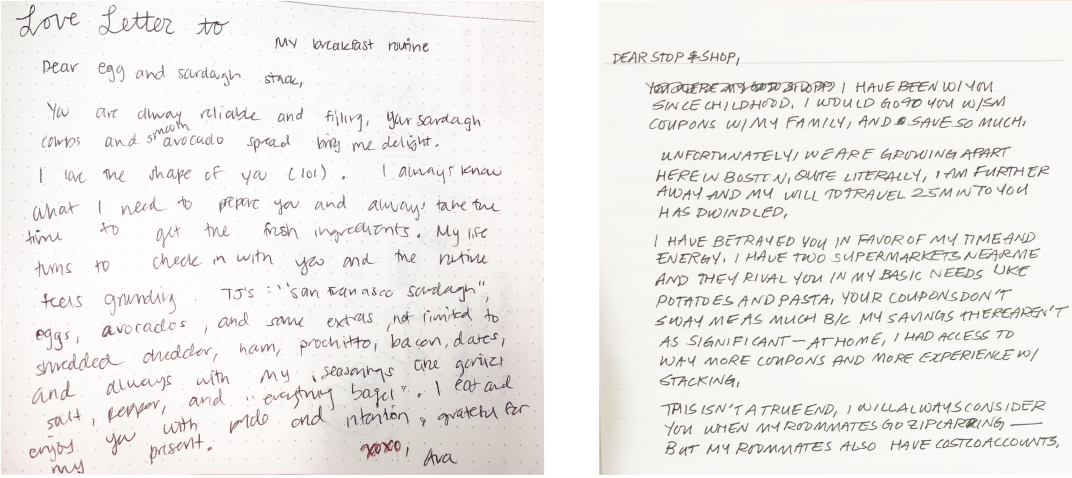 Love Letter to
My breakfast routine
Dear egg and sardagh stack,
You are alway reliable and filling, your sardagh
combs and smooth avocado spread bring me delight.
I love the shape of you (lol). I always know
what I need to prepare you and always take the
time to get the fresh ingredients. My life
turns to check in with you and the routine
feels grounding. TJ's: "San Franasco sardagh",
eggs, avocados, and some extras, not limited to
shredded cheddar, ham, prochitto, bacon, dates,
and always with my seasonings are garlic
salt, pepper, and "everything bagel". I eat and
enjoy you with pride and intention, grateful for
my present.
xoxo, Ava
DEAR STOP & SHOP,
I HAVE BEEN W/ YOU
SINCE CHILDHOOD. I WOULD GO TO YOU W/ SM
COUPONS W/ MY FAMILY, AND SAVE SO MUCH.
UNFORTUNATELY, WE ARE GROWING APART
HERE IN BOSTON, QUITE LITERALLY, I AM FURTHER
AWAY AND MY WILL TO TRAVEL 25 MIN TO YOU
HAS DWINDLED.
I HAVE BETRAYED YOU IN FAVOR OF MY TIME AND
ENERGY. I HAVE TWO SUPERMARKETS NEAR ME
AND THEY RIVAL YOU IN MY BASIC NEEDS LIKE
POTATOES AND PASTA, YOUR COUPONS DON'T
SWAY ME AS MUCH B/C MY SAVINGS THERE AREN'T
AS SIGNIFICANT — AT HOME, I HAD ACCESS TO
WAY MORE COUPONS AND MORE EXPERIENCE W/
STACKING.
THIS ISN'T A TRUE END, I WILL ALWAYS CONSIDER
YOU WHEN MY ROOMMATES GO ZIPCARRING —
BUT MY ROOMMATES ALSO HAVE COSTCO ACCOUNTS.